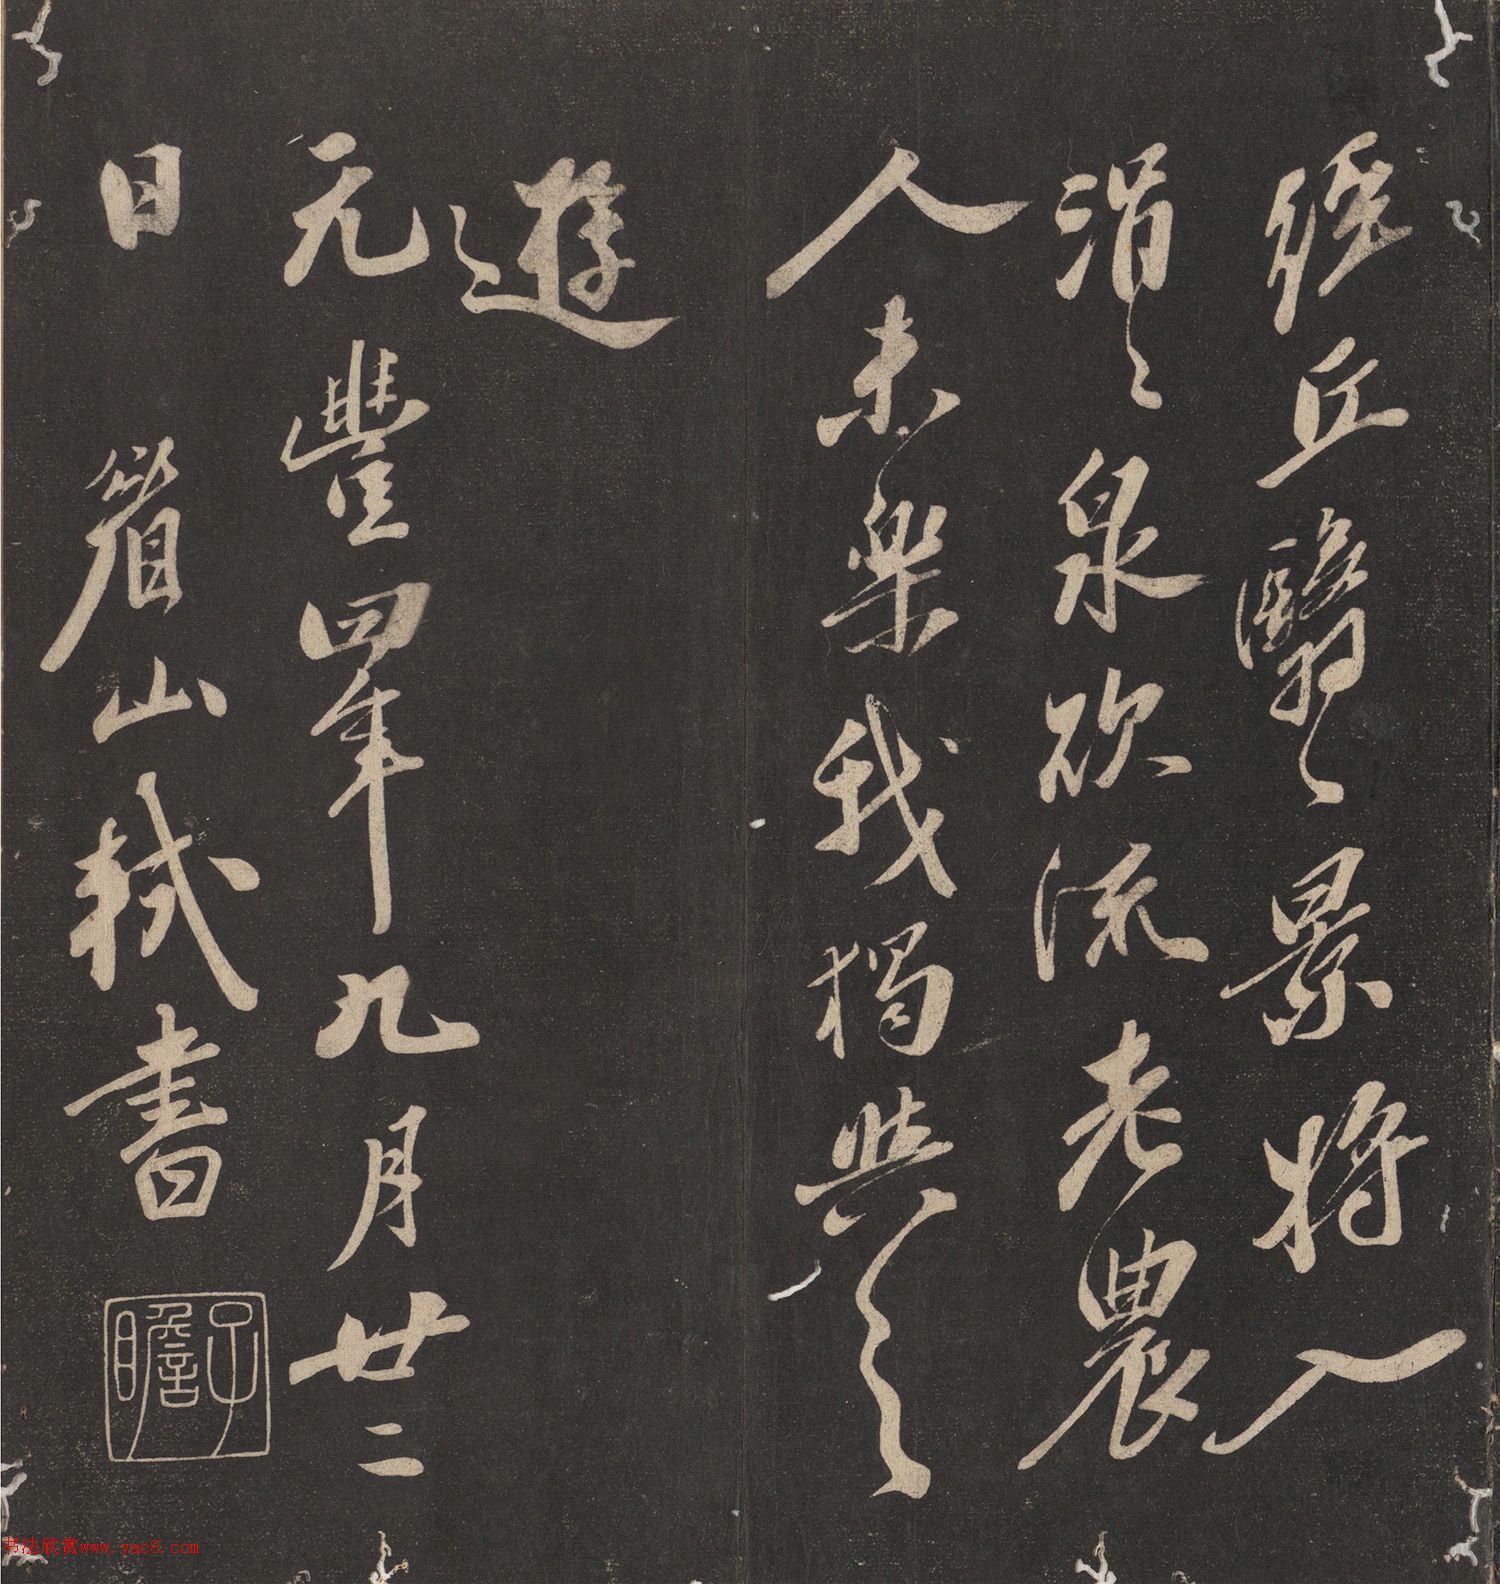 經丘翳〻景將入
涓〻泉欲流老農
人未樂我獨與之
遊
元豐四年九月廿二
日 眉山軾書
子瞻
书法欣赏www.yac8.com